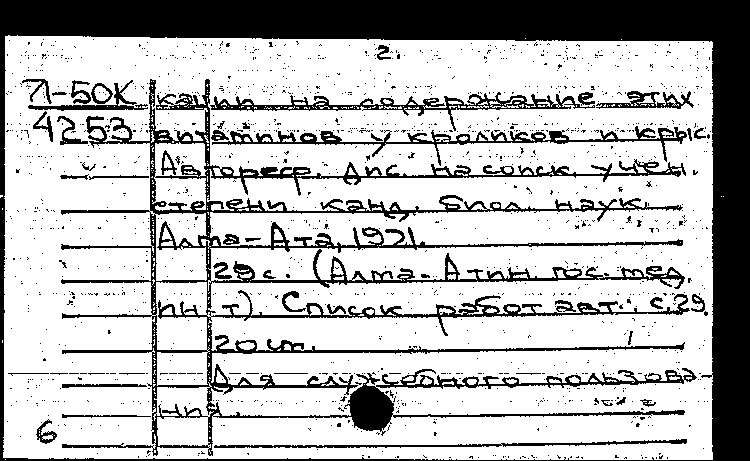 2.
71-50К кации на содержание этих
4253 витаминов у кроликов и крыс.
Автореф. Дис. на соиск. учен.
степени канд. биол. наук.
Алма-Ата, 1971.
29 с. (Алма-Атин. гос. мед.
ин-т). Список работ авт.: с. 29.
20 см.
Для служебного пользова-
ния.
6